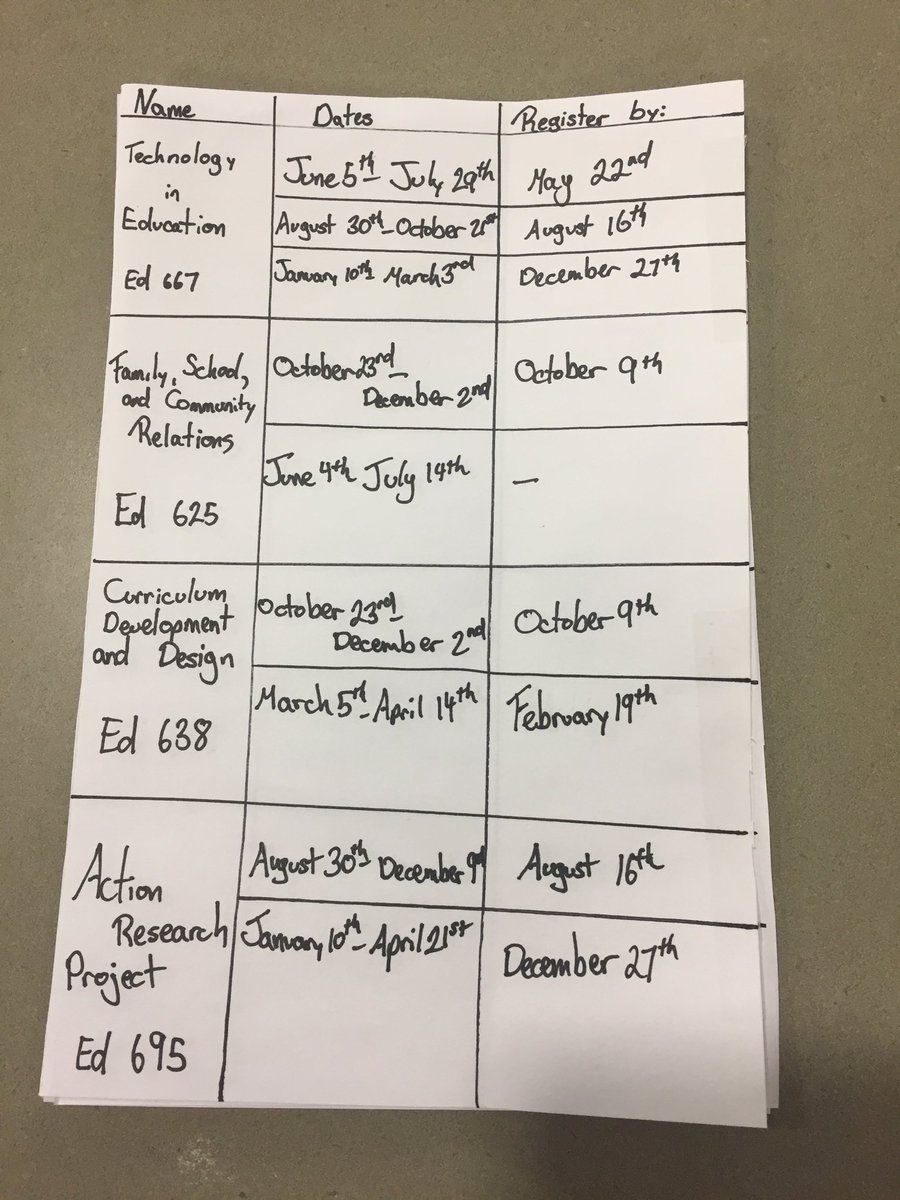 Name Dates Register by:
Technology
in
Education
Ed 667
June 5th - July 29th May 22nd
August 30th - October 21st August 16th
January 10th - March 3rd December 27th
Family, School,
and Community
Relations
Ed 625
October 23rd -
December 2nd
October 9th
June 4th July 14th —
Curriculum
Development
and Design
Ed 638
October 23rd -
December 2nd
October 9th
March 5th - April 14th February 19th
Action
Research
Project
Ed 695
August 30th - December 9th August 16th
January 10th - April 21st December 27th